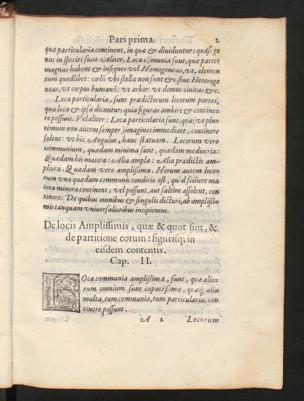 Pars prima. 2
quæ particularia continent, in quæ & diuiduntur: quasi ge
nus in species suas. Aliter. Loca cõmunia sunt, quæ partes
magnas habent & insignes vel Homogeneas, vt, elemen
tum quodlibet: cœli vbi stellæ non sunt & c. siue Heteroge
neas, vt corpus humanũ: vt arbor: vt domus: ciuitas & c.
Loca particularia, sunt prædictorum locorum partes,
quæ loca ipsa dicuntur: quia figuras ambire & contine
re possunt. Vel aliter: Loca particularia sunt, quæ (vt plu
rimum non autem semper) imagines immediate, continere
solent: vt hic Angulus, hanc statuam. Locorum vero
communium, quædam minima sunt, quædam mediocria:
Quædam his maiora: Alia ampla: Alia prædictis am
pliora. Quædam vero amplissima. Horum autem locor
rum vna quædam communis conditio est, quòd scilicet ma
iora minora continent, vel possunt, aut saltim assolent, con
tinere. De quibus omnibus & singulis dicturi, ab amplissi
mis tanquam vniuersalioribus incipiemus.
De locis Amplissimis, quæ & quot sint, &
de partitione eorum: figurisq; in
eisdem contentis.
Cap. II.
Loca communia amplissima, sunt, quæ alio
rum omnium sunt capacissima, quæq; alia
multa, tum communia, tum particularia, con
tinere possunt.
A 2 Locorum